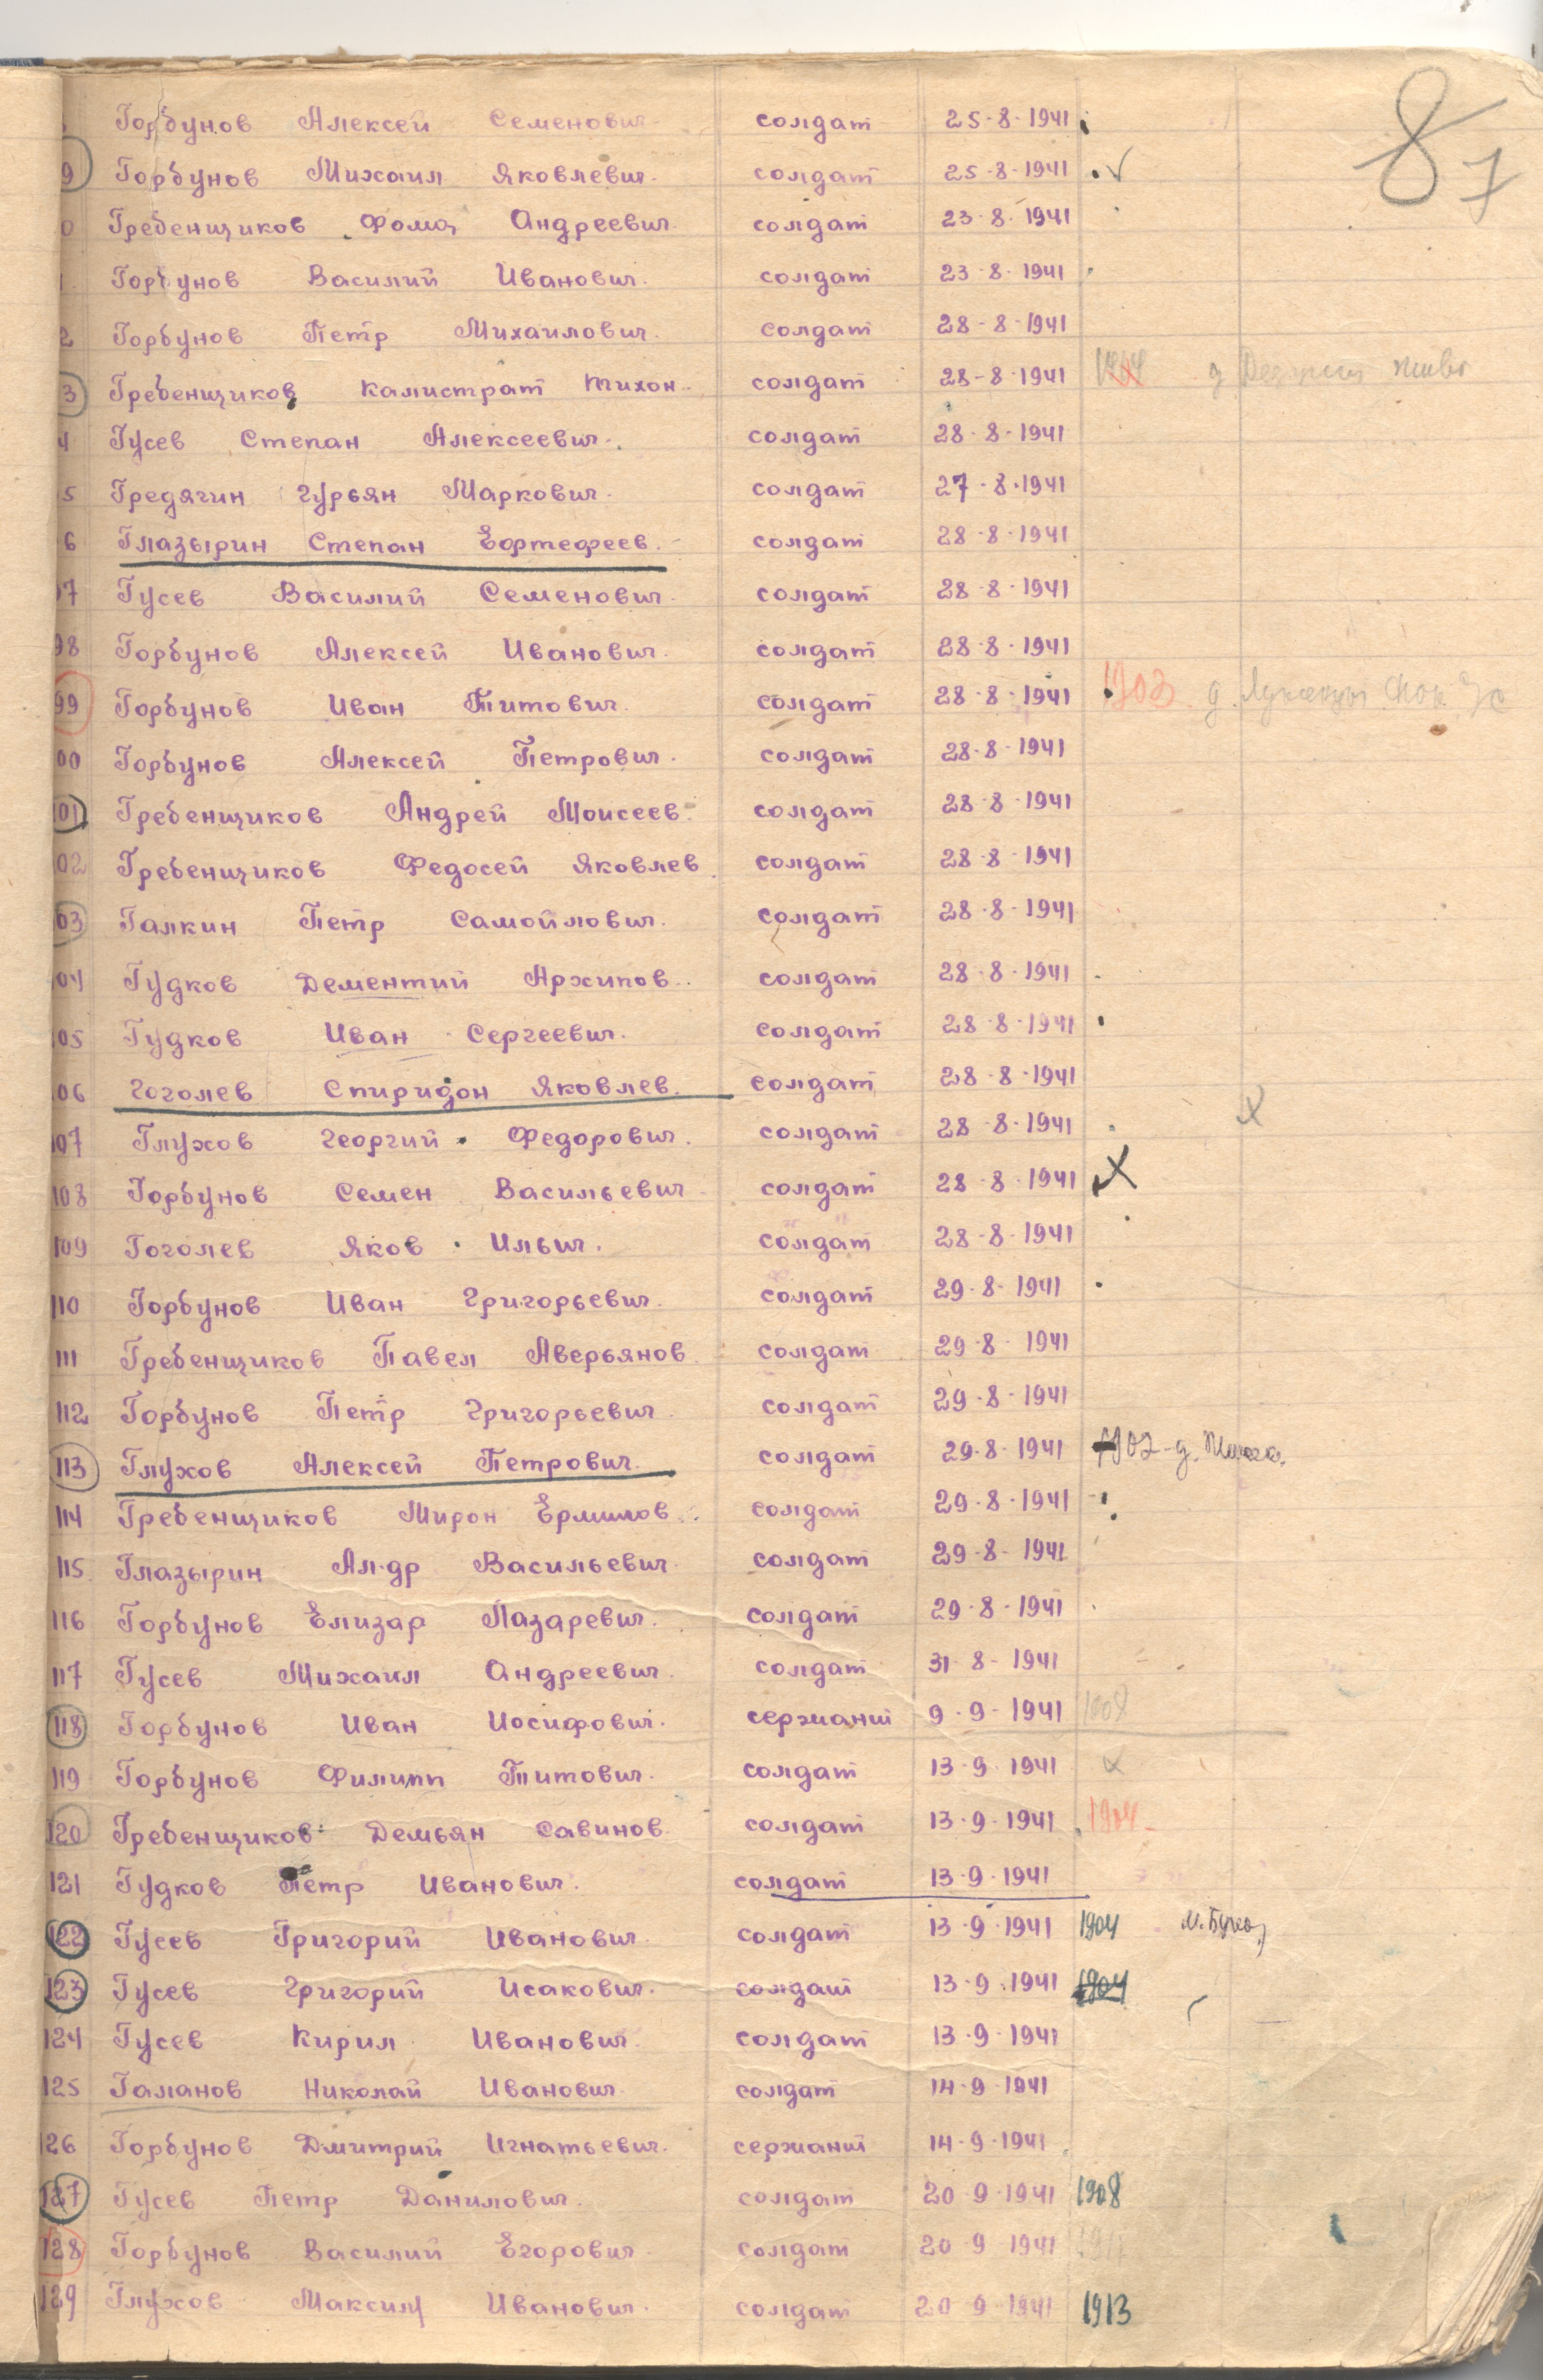 87
Горбунов Алексей Семенович солдат 25-8-1941
9 Горбунов Михаил Яковлевич солдат 25-8-1941
0 Гребенщиков Фома Андреевич солдат 23-8-1941
Горбунов Василий Иванович солдат 23-8-1941
2 Горбунов Петр Михаилович солдат 28-8-1941
3 Гребенщиков Калистрат Тихон солдат 28-8-1941
4 Гусев Степан Алексеевич солдат 28-8-1941
5 Гредягин Гурьян Маркович солдат 27-8-1941
6 Глазырин Степан солдат 28-8-1941
97 Гусев Василий Семенович солдат 28-8-1941
98 Горбунов Алексей Иванович солдат 28-8-1941
99 Горбунов Иван Титович солдат 28-8-1941 1903 д.
00 Горбунов Алексей Петрович солдат 28-8-1941
101 Гребенщиков Андрей Моисеев солдат 28-8-1941
102 Гребенщиков Федосей Яковлев солдат 28-8-1941
03 Галкин Петр Самойлович солдат 28-8-1941
104 Гудков Дементий Архипов солдат 28-8-1941
105 Гудков Иван Сергеевич солдат 28-8-1941
106 Гоголев Спиридон Яковлев солдат 28-8-1941
107 Глухов Георгий Федорович солдат 28-8-1941
108 Горбунов Семен Васильевич солдат 28-8-1941
109 Гоголев Яков Ильич солдат 28-8-1941
110 Горбунов Иван Григорьевич солдат 29-8-1941
111 Гребенщиков Павел Аверьянов солдат 29-8-1941
112 Горбунов Петр Григорьевич солдат 29-8-1941
113 Глухов Алексей Петрович солдат 29-8-1941 1902-д.
114 Гребенщиков Мирон Ермилов солдат 29-8-1941
115 Глазырин Ал-др Васильевич солдат 29-8-1941
116 Горбунов Елизар Лазаревич солдат 29-8-1941
117 Гусев Михаил Андреевич солдат 31-8-1941
118 Горбунов Иван Иосифович сержант 9-9-1941
119 Горбунов Филипп Титович солдат 13-9-1941
120 Гребенщиков Демьян Савинов солдат 13-9-1941 1904
121 Гудков Петр Иванович солдат 13-9-1941
122 Гусев Григорий Иванович солдат 13-9-1941 1904
123 Гусев Григорий Исакович солдат 13-9-1941 1904
124 Гусев Кирил Иванович солдат 13-9-1941
125 Галанов Николай Иванович солдат 14-9-1941
126 Горбунов Дмитрий Игнатьевич сержант 14-9-1941
127 Гусев Петр Данилович солдат 20-9-1941 1908
128 Горбунов Василий Егорович солдат 20-9-1941
129 Глухов Максим Иванович солдат 20-9-1941 1913